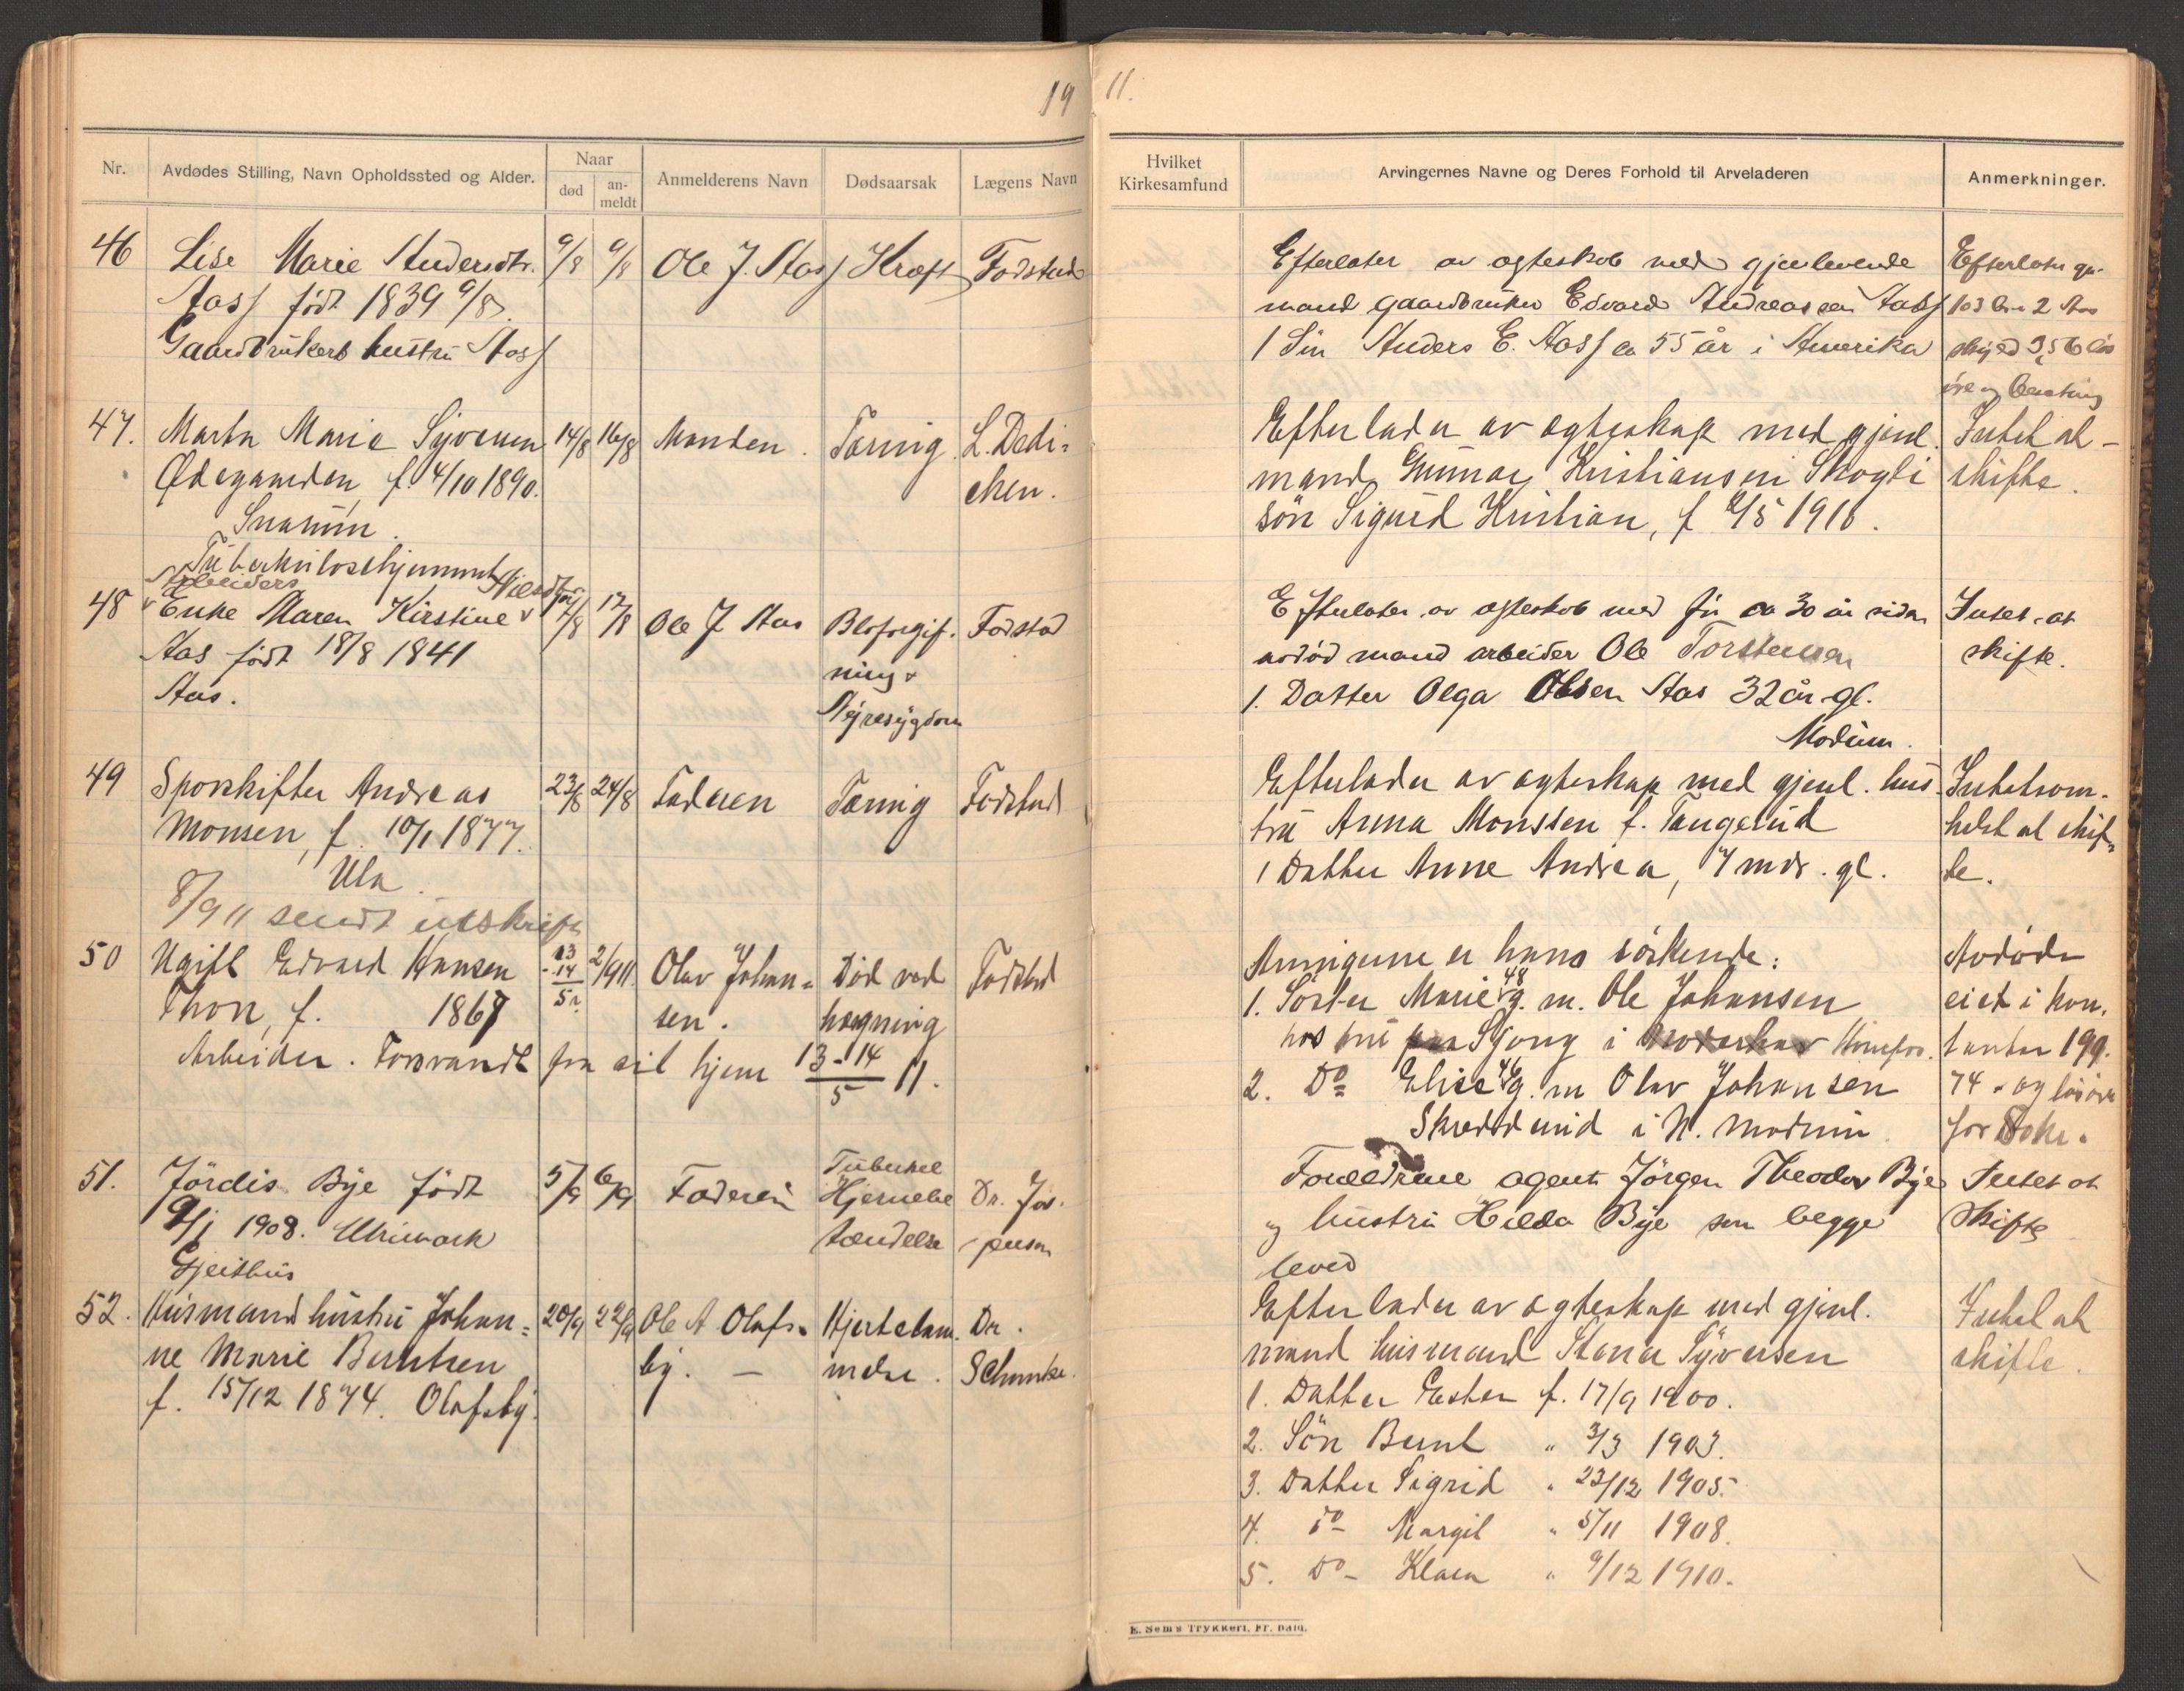 19
11.
Nr.
Avdødes Stilling, Navn Opholdssted og Alder.
Naar
død
an-
meldt
Anmelderens Navn
Dødsaarsak
Lægens Navn
Hvilket
Kirkesamfund
Arvingernes Navne og Deres Forhold til Arveladeren
Anmerkninger.
46 Lise Marie Andersdtr. 9/8 9/8 Ole J. Aas Kræft Fodstad
Aas født 1839 9/8
Gaardbrukers hustru Aas
Efterlater av egteskab med gjenlevende
mand gaardbruker Edvard Andreassen Aas
1 Sön Anders E. Aas ca 55 år i Amerika
Efterlater
103 2 Aas
skyld
47. Marta Marie Syversen 14/8 16/8 Manden. Tæring. L. Dedi-
Ødegaarden, f. 4/10 1890. chen.
Snarum.
Tuberkulosehjemmet
Efterlader av egteskap med gjenl.
mand Gunnar Kristiansen Skogli
sön Sigurd Kristian, f 1910.
Intet at
skifte.
Arbeiders Nilsdtr
48 Enke Maren Kirstine 17/8 17/8 Ole J Aas Blofogif- Fodstad
Aas født 18/8 1841 ning
Aas. Nyresygdom
Efterlater av egteskab med for ca 30 år siden
avdød mand arbeider Ole Torstensen
1. Datter Olga Olsen Aas 32 år gl.
Modum.
Intet at
skifte.
49 Sporskifter Andreas 23/8 24/8 Faderen Tæring Fodstad
Monsen, f. 10/1 1877.
Ula.
8/9 11 sendt utskrift
Efterlader av egteskap med gjenl. hus-
tru Anna Monssen f. Tangerud
1 Datter Anne Andrea, 7 mdr. gl.
Intetsom-
helst at skif-
te.
50 Ugift Edvard Hansen 13-14/5 2/9 11. Olav Johan- Död ved Fodstad
Thon, f. 1867 sen. hængning
Arbeider. Forsvandt fra sit hjem 13-14/5 11.
Arvingerne er hans söskende:
1. Söster Marie 48 g. m. Ole Johansen
i Hönefos.
2. Do Elise 46 g. m Olav Johansen
Skredderud i N. Modum.
Avdöde
eiet i kon-
tanter 199.
74 og lösöre
for kr.
51. Jördis Bye født 5/9 6/9 Faderen Tuberkel Dr. Jas-
9/1 1908. Hjernebe persen
Geithus tændelse
Forældrene agent Jörgen Theodor Bye
og hustru Hilda Bye som begge
lever
Intet at
skifte
52. Husmandhustru Johan- 20/9 22/9 Ole A Olafs- Hjertelam- Dr.
ne Marie Berntsen by. — melse. Schenke.
f. 15/12 1874. Olafsby.
Efterlader av egteskap med gjenl.
mand husmand Syversen
1. Datter Ester f. 17/9 1900.
2. Sön Bernt " 3/3 1903.
3. Datter Sigrid " 23/12 1905.
4. Do - Margit " 5/11 1908.
5. Do - Klara " 9/12 1910.
Intet at
skifte.
E. Sem's Trykkeri, Fr.hald.